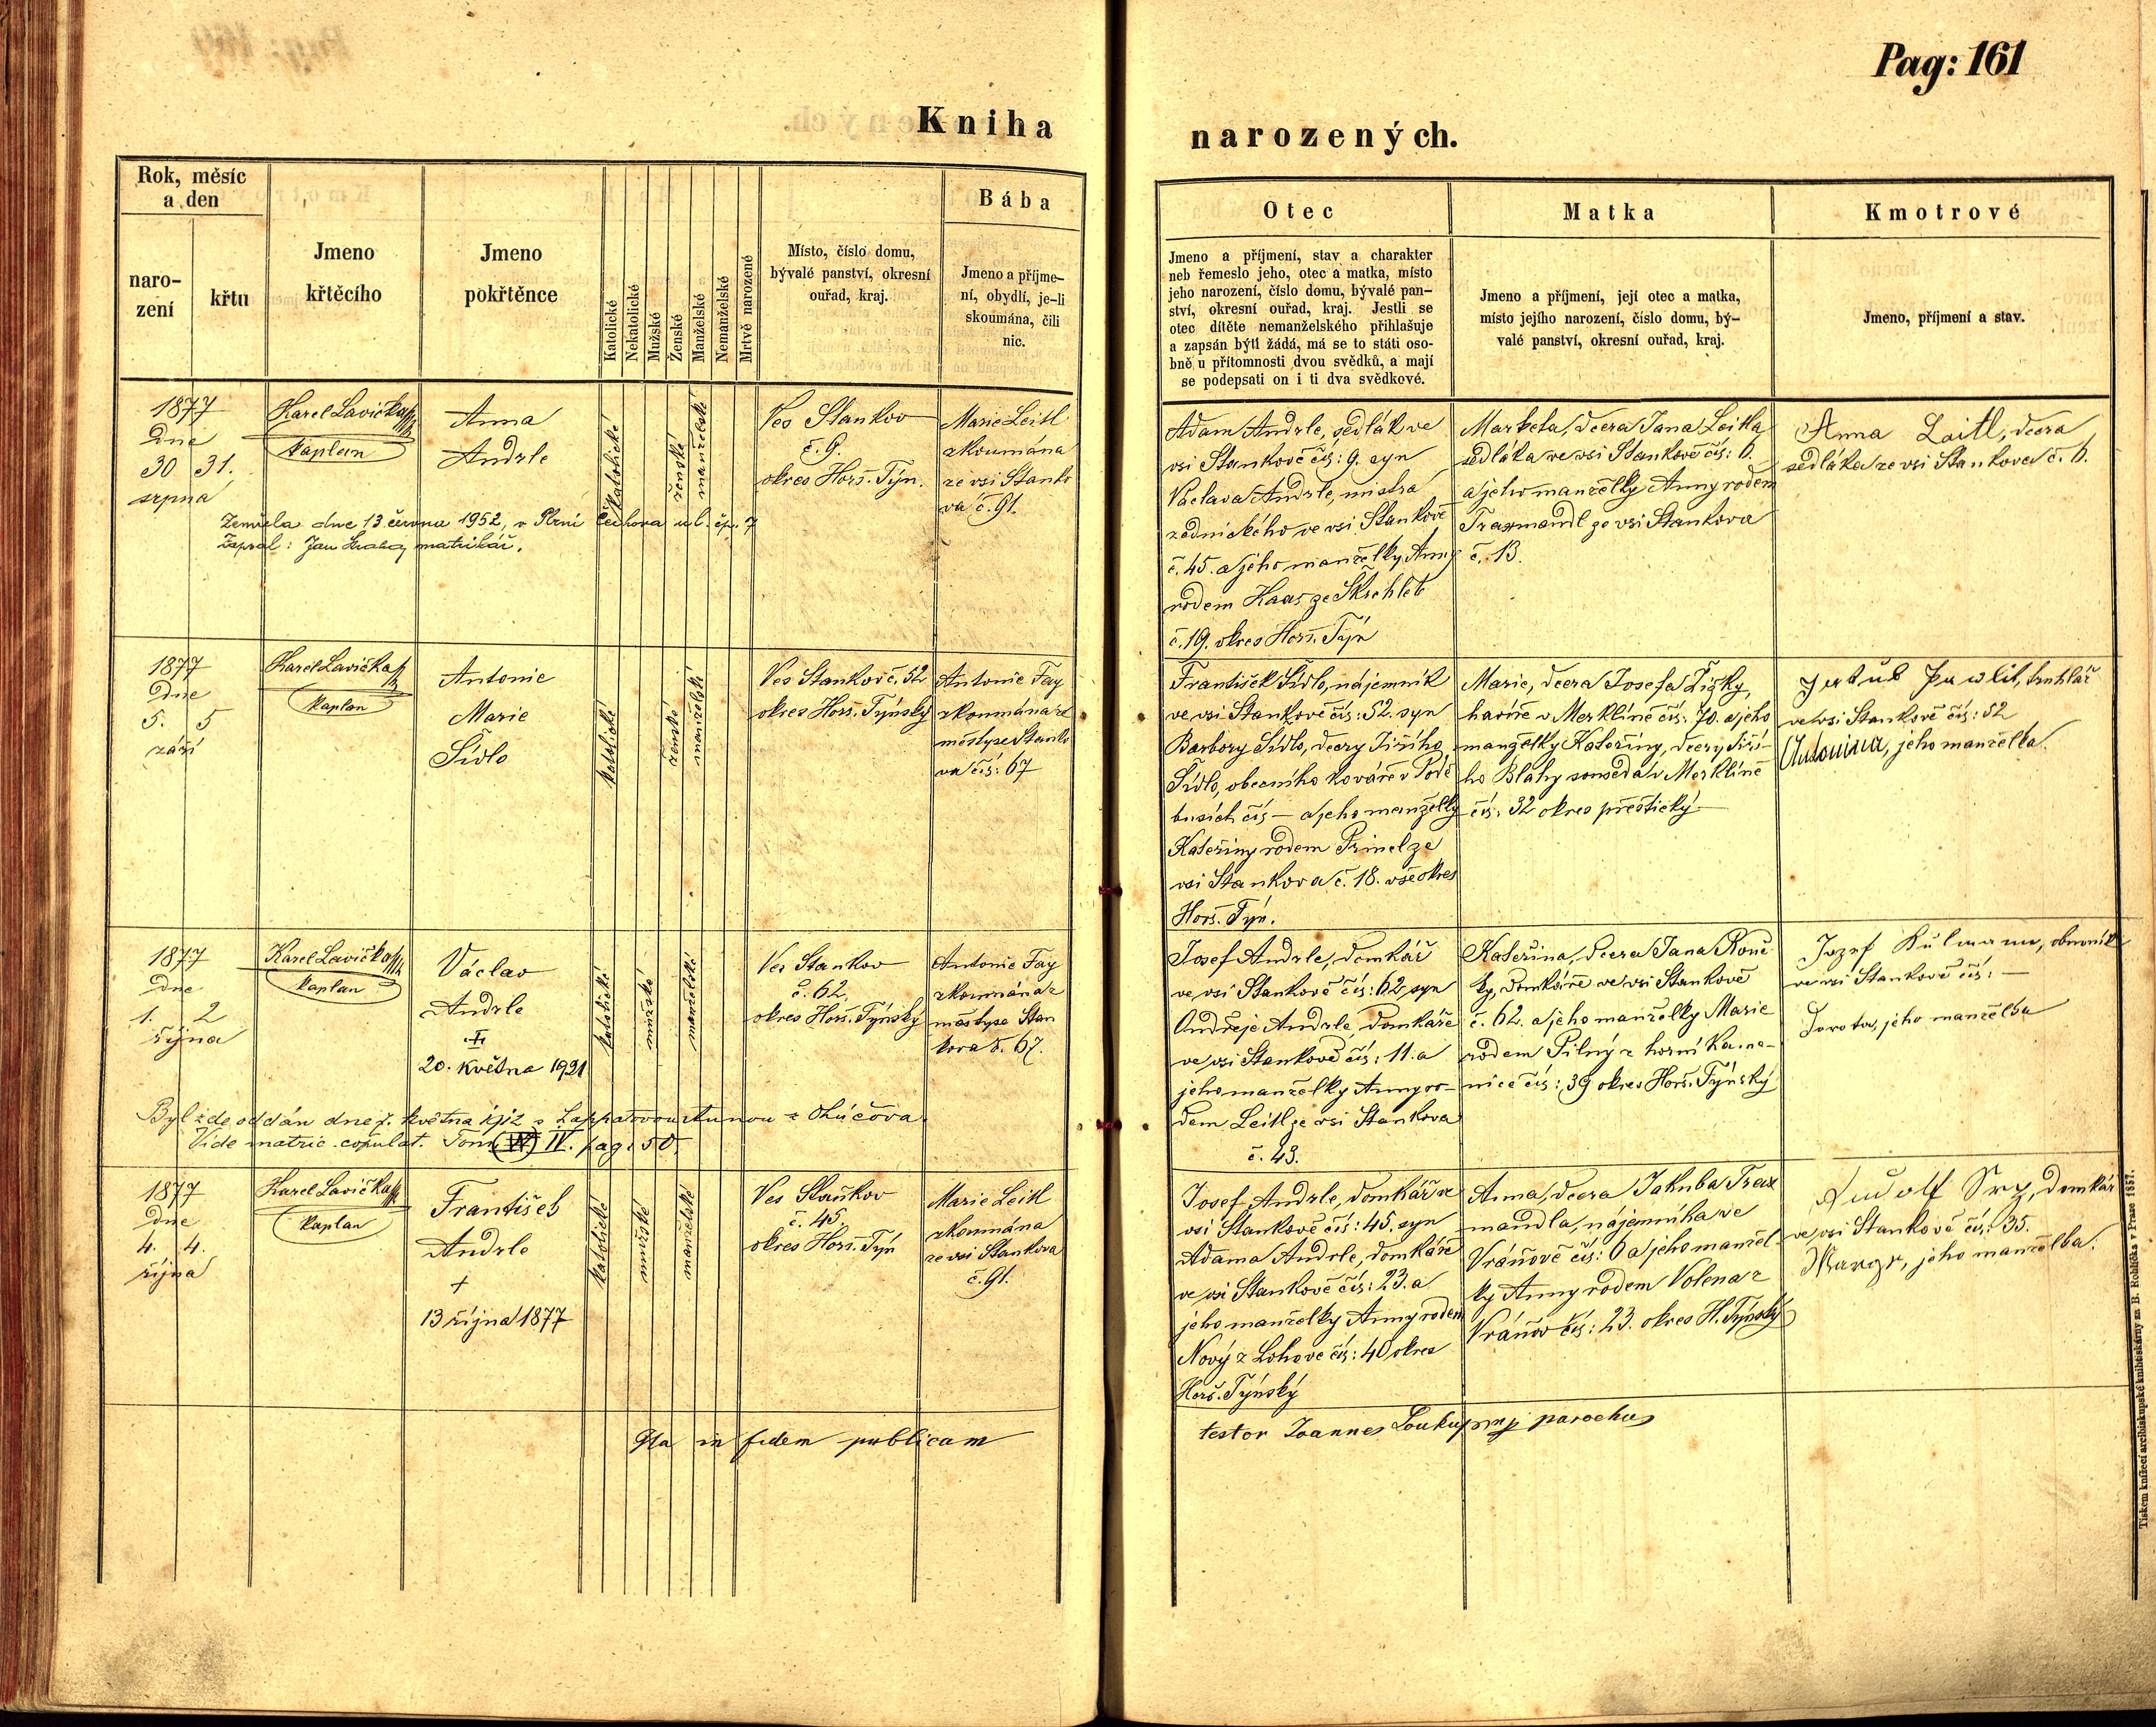 Pag: 161
Kniha narozených.
Rok, měsíc
a den
naro-
zení
křtu
Jmeno
křtěcího
Jmeno
pokřtěnce
Katolické
Nekatolické
Mužské
Ženské
Manželské
Nemanželské
Mrtvě narozené
Místo, číslo domu,
bývalé panství, okresní
ouřad, kraj.
Bába
Jmeno a příjme-
ní, obydlí, je-li
skoumána, čili
nic.
Otec
Jmeno a příjmení, stav a charakter
neb řemeslo jeho, otec a matka, místo
jeho narození, číslo domu, bývalé pan-
ství, okresní ouřad, kraj. Jestli se
otec dítěte nemanželského přihlašuje
a zapsán býti žádá, má se to státi oso-
bně u přítomnosti dvou svědků, a mají
se podepsati on i ti dva svědkové.
Matka
Jmeno a příjmení, její otec a matka,
místo jejího narození, číslo domu, bý-
valé panství, okresní ouřad, kraj.
Kmotrové
Jmeno, příjmení a stav.
1877
Dne
30 31.
srpna
Karel Lavička
kaplan
Anna
Andrle
katolické
ženské
manželské
Ves Stankov
č. 9.
okres Horš. Týn.
Marie Leitl
zkoumána
ze vsi Stanko
va č. 91.
Zemřela dne 13. června 1952, v Plzni Čechova ul. čp. 7
Zapsal: Jan matrikář.
Adam Andrle, sedlák ve
vsi Stankově čís: 9. syn
Václava Andrle, mistra
zednického ve vsi Stankově
č. 45. a jeho manželky Anny
rodem Haas ze
č. 19. okres Horš. Týn
Marketa, dcera Jana Leitla
sedláka ve vsi Stankově čís: 6.
a jeho manželky Anny rodem
Traxmandl ze vsi Stankova
č. 13.
Anna Laitl, dcera
sedláka ze vsi Stankova č. 6.
1877
Dne
5. 5
září
Karel Lavička
kaplan
Antonie
Marie
Šídlo
katolické
ženské
manželské
Ves Stankov č. 52
okres Horš. Týnský
Antonie Fay
zkoumána z
městyse Stanko
va čís: 67
František Šídlo, nájemník
ve vsi Stankově čís: 52. syn
Barbory Šídlo, dcery Jiřího
Šídlo, obecního kováře v Podě
busích čís — a jeho manželky
Kateřiny rodem ze
vsi Stankova č. 18. vše okres
Horš. Týn.
Marie, dcera Josefa Žižky,
v Merklíně čís: 70. a jeho
manželky Kateřiny, dcery Jiří-
ho Bláhy souseda v Merklíně
čís: 32 okres přeštický
Jakub Pawlik, truhlář
ve vsi Stankově čís: 52
Antonina, jeho manželka.
1877
Dne
1. 2
října
Karel Lavička
kaplan
Václav
Andrle
20. května 1921
katolické
mužské
manželské
Ves Stankov
č. 62.
okres Horš. Týnský
Antonie Fay
zkoumána z
městyse Stan
kova č. 67.
Byl zde oddán dne 7. května s Annou z
Vide matric. copulat. Tom IV. pag: 50.
Josef Andrle, domkář
ve vsi Stankově čís: 62 syn
Ondřeje Andrle, domkáře
ve vsi Stankově čís: 11. a
jeho manželky Anny ro-
dem Leitl ze vsi Stankova
č. 43.
Kateřina, dcera Jana Konč
ky, domkáře ve vsi Stankově
č. 62. a jeho manželky Marie
rodem Pilný z horní Kame-
nice čís: 39 okres Horš. Týnský
Jozef Kulmann, obuvník
ve vsi Stankově čís: —
Dorota, jeho manželka
1877
Dne
4. 4.
října
Karel Lavička
kaplan
František
Andrle
†
13 října 1877
katolické
mužské
manželské
Ves Staňkov
č. 45.
okres Horš. Týn
Marie Leitl
zkoumána
ze vsi Stankova
č. 91.
Josef Andrle, domkář ve
vsi Stankově čís: 45. syn
Adama Andrle, domkáře
ve vsi Stankově čís: 23. a
jeho manželky Anny rodem
Nový z Lohova čís: 40 okres
Horš. Týnský
Anna, dcera Jakuba Trax
mandla, nájemníka ve
Vráňově čís: 6 a jeho manžel-
ky Anny rodem Volena z
Vráňov čís: 23. okres H. Týnský
Rudolf Srp, domkář
ve vsi Stankově čís: 35.
Margr, jeho manželka.
Ita in fidem publicam
testor Joannes Loukup parochus
Tiskem knížecí arcibiskupské knihtiskárny za B. Rohlíčka v Praze 1857.